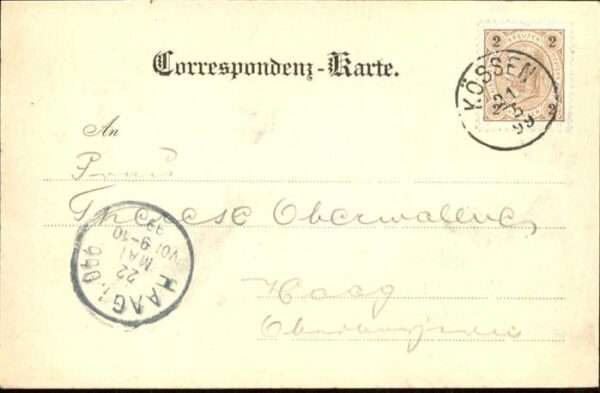 Correspondenz-Karte.
2 KREUZER 2
2 2
KÖSSEN
21/5
99
An
Frau
Therese Oberwallner
Haag
Oberbayern
HAAG i. OBB
22
MAI
VOR 9-10
99